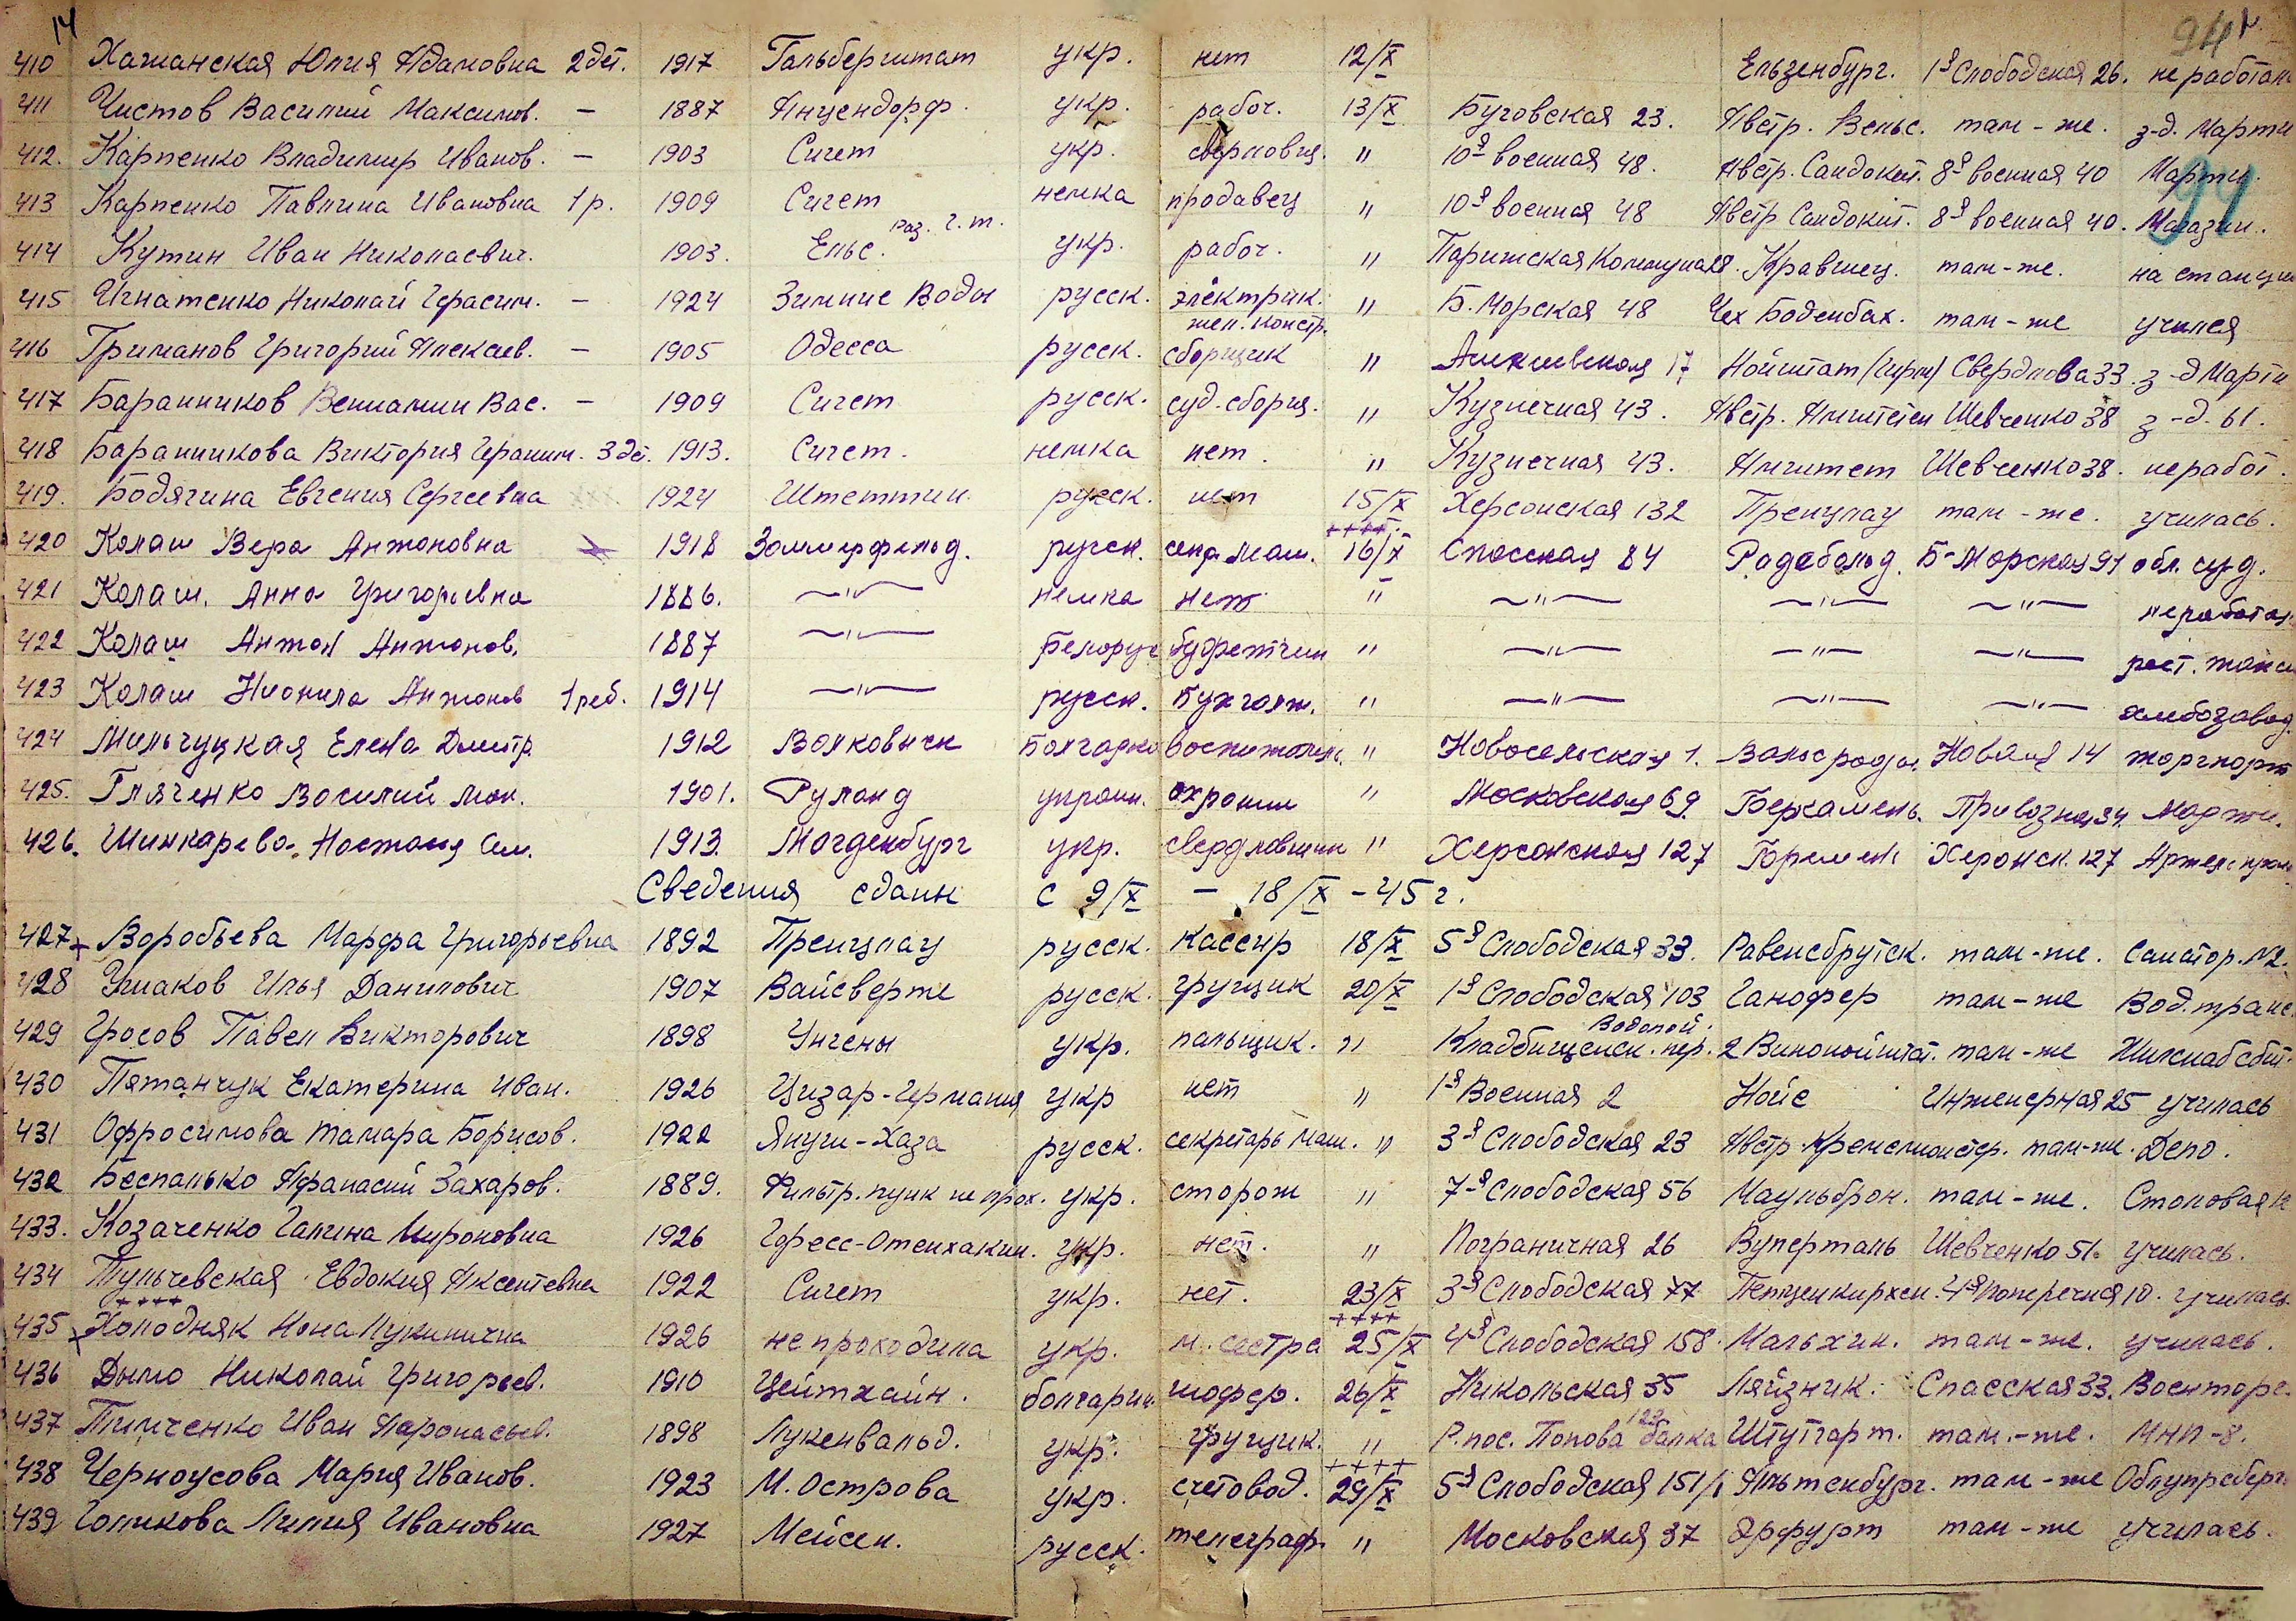 14 94
410 Хажанская Юлия Адамовна 2 дет. 1917 Гальберштат укр. нет 12/X Ельзенбург. 1я Слободская 26. не работал
94
411 Чистов Василий Максимов. – 1887 Анцендорф. укр. рабоч. 13/X Буговская 23. Австр. Вельс. там-же. з-д. Марти
412. Карпенко Владимир Иванов. – 1903 Сигет укр. сверловщ. " 10я военная 48. Австр. Сандокит. 8я военная 40 Марти.
413 Карпенко Павлина Ивановна 1 р. 1909 Сигет немка продавец " 10я военная 48 Австр Сандокит. 8я военная 40. Магазин.
414 Кутин Иван Николаевич. 1903. Ельс. раз. г.т. укр. рабоч. " Парижская Коммуна 28. Кравинец. там-же. на станции
415 Игнатенко Николай Герасим. – 1924 Зимние Воды русск. электрик. " Б. Морская 48 Чех Боденбах. там-же учился
416 Гриманов Григорий Алексеев. – 1905 Одесса русск. сборщик жел. констр. " 17 Нойштат Свердлова 33. з-д Марти
417 Баранников Вениамин Вас. – 1909 Сигет русск. суд. сборщ. " Кузнечная 43. Австр. Шевченко 38 з-д. 61.
418 Баранникова Виктория Герасим. 3 дет. 1913. Сигет. немка нет. " Кузнечная 43. Шевченко 38. неработ.
419. Бодягина Евгения Сергеевна 1924 Штеттин русск. нет 15/X Херсонская 132 Пренцлау там-же. училась.
420 Колаш Вера Антоновна 1918 Зоммерфельд. русск. секр. маш. 16/X Спасская 84 Радебольд. Б-Морская 91 обл. суд.
421 Колаш. Анна Григорьевна 1886. —"— немка нет " —"— —"— —"— неработал
422 Колаш Антон Антонов. 1887 —"— белорус буфетчик " —"— —"— —"— рест.
423 Колаш Неонила Антонов 1 реб. 1914 —"— русск. Бухголт. " —"— —"— —"— хлебозавод.
424 Мильчуцкая Елена Дмитр. 1912 Волковыск Болгарка воспитатель " Новосельская 1. Вальсроде. Новая 14 торгпорт
425. Гляченко Восилий Мак. 1901. Руланд украин. охранник " Московская 69. Беркамень. Привозная 34. Марти.
426. Шинкарева Настасия Сем. 1913. Магденбург укр. сверловщик " Херсонская 127 Херсонск. 127 Артель
Сведения сданы с 9/X – 18/X – 45 г.
427 Воробьева Марфа Григорьевна 1892 Пренцлау русск. кассир 18/X 5я Слободская 33. Равенсбрутск. там-же. Санатор. N2.
428 Ушаков Илья Данилович 1907 Вайсверте русск. грущик 20/X 1я Слободская 103 Ганофер там-же Вод. транс.
429 Гросов Павел Викторович 1898 Унгены укр. пальщик. " Водопой. Кладбищенск. пер. 2 там-же
430 Пятанчук Екатерина Иван. 1926 Цизар-Германия укр нет " 1я Военная 2 Нойс Инженерная 25 училась
431 Офросимова Тамара Борисов. 1922 Януш-Хаза русск. секретарь маш. " 3-я Слободская 23 Австр. там-же. Депо.
432 Беспалько Афанасий Захаров. 1889. Фильтр. пунк не прох. укр. сторож " 7-я Слободская 56 Маульброн. там-же. Столовая
433. Козаченко Галина Мироновна 1926 Гросс-Отенхакин. укр. нет. " Пограничная 26 Вуперталь Шевченко 51. училась.
434 Тульчевская Евдокия Аксентевна 1922 Сигет укр. нет. 23/X 3я Слободская 77 Гепценкирхен. 4я поперечная 10. училась
435 Холодняк Нона Лукинична 1926 не проходила укр. м. сестра 25/X 4я Слободская 158. Мальхин. там-же. училась.
436 Дымо Николай Григорьев. 1910 Цейтхайн. болгарин. шофер. 26/X Никольская 35 Ляйзник. Спасская 33. Военторг.
437 Тимченко Иван Афонасьев. 1898 Лукенвальд. укр. грущик. " Р. пос. Попова балка 122 Штутгарт. там-же. МНП-8.
438 Черноусова Мария Иванов. 1923 М. Острова укр. счетовод. 29/X 5я Слободская 151/1 Альтенбург. там-же Облупрсберк.
439 Голикова Лилия Ивановна 1927 Мейсен. русск. телеграф. " Московская 37 Эрфурт там-же училась.